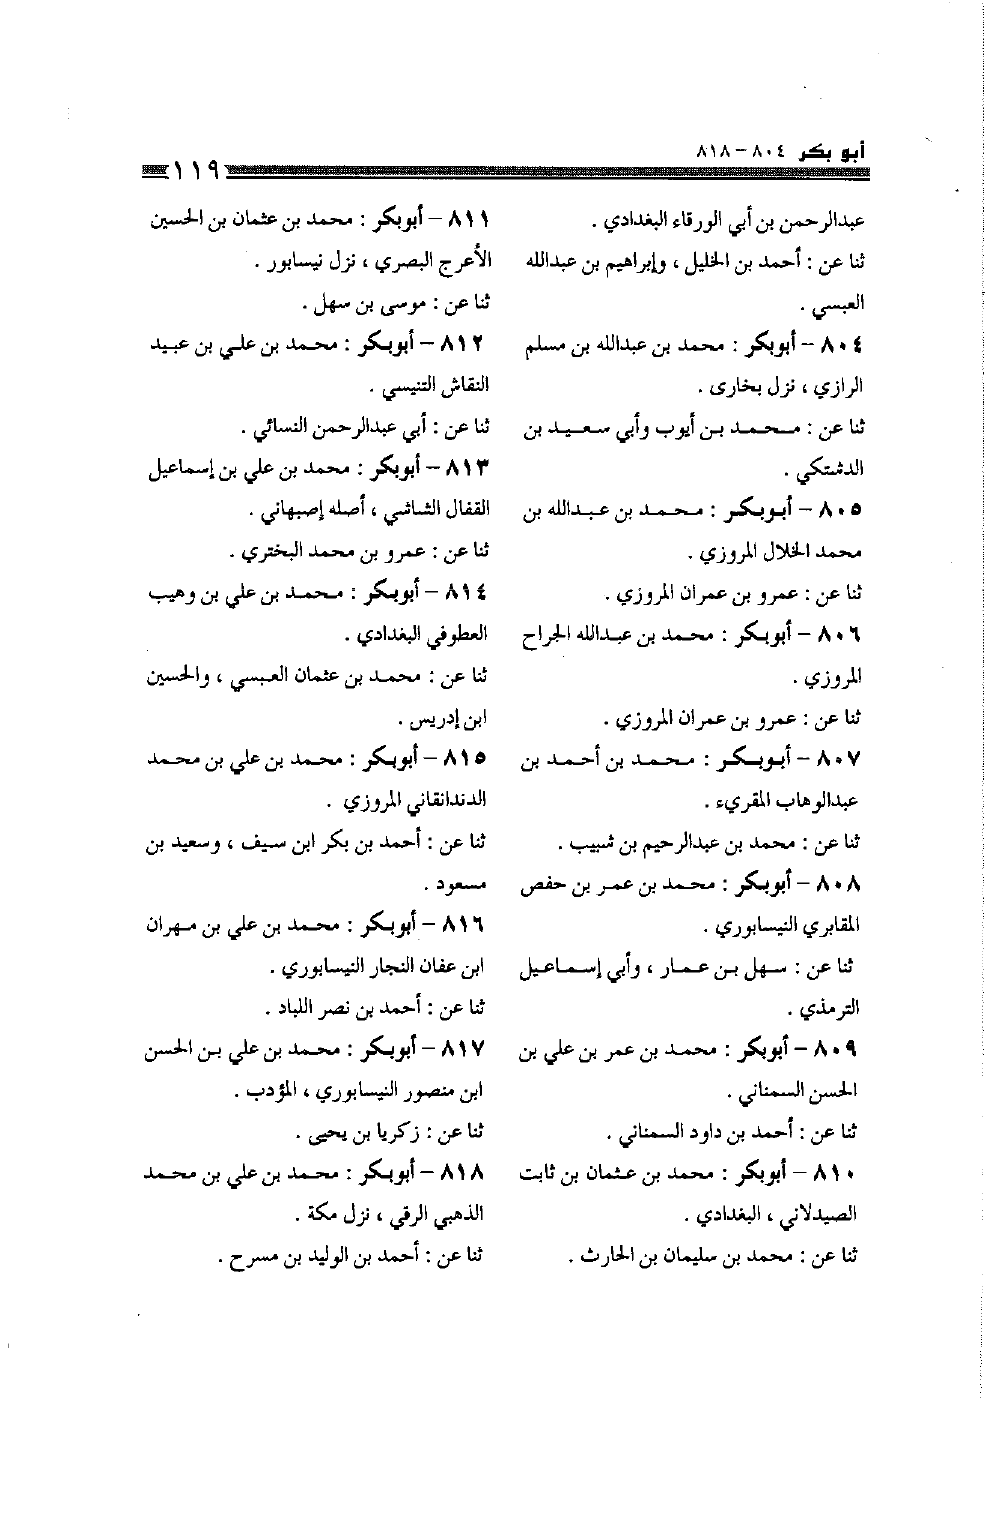 أبو بكر ٨٠٤ – ٨١٨
١١٩
عبدالرحمن بن أبي الورقاء البغدادي .
ثنا عن : أحمد بن الخليل ، وإبراهيم بن عبدالله
العبسي .
٨٠٤ – أبوبكر : محمد بن عبدالله بن مسلم
الرازي ، نزل بخارى .
ثنا عن : محمد بن أيوب وأبي سعيد بن
الدشتكي .
٨٠٥ – أبوبكر : محمد بن عبدالله بن
محمد الخلال المروزي .
ثنا عن : عمرو بن عمران المروزي .
٨٠٦ – أبوبكر : محمد بن عبدالله الجراح
المروزي .
ثنا عن : عمرو بن عمران المروزي .
٨٠٧ – أبوبكر : محمد بن أحمد بن
عبدالوهاب المقريء .
ثنا عن : محمد بن عبدالرحيم بن شبيب .
٨٠٨ – أبوبكر : محمد بن عمر بن حفص
المقابري النيسابوري .
ثنا عن : سهل بن عمار ، وأبي إسماعيل
الترمذي .
٨٠٩ – أبوبكر : محمد بن عمر بن علي بن
الحسن السمناني .
ثنا عن : أحمد بن داود السمناني .
٨١٠ – أبوبكر : محمد بن عثمان بن ثابت
الصيدلاني ، البغدادي .
ثنا عن : محمد بن سليمان بن الحارث .
٨١١ – أبوبكر : محمد بن عثمان بن الحسين
الأعرج البصري ، نزل نيسابور .
ثنا عن : موسى بن سهل .
٨١٢ – أبوبكر : محمد بن علي بن عبيد
النقاش التنيسي .
ثنا عن : أبي عبدالرحمن النسائي .
٨١٣ – أبوبكر : محمد بن علي بن إسماعيل
القفال الشاشي ، أصله إصبهاني .
ثنا عن : عمرو بن محمد البختري .
٨١٤ – أبوبكر : محمد بن علي بن وهيب
العطوفي البغدادي .
ثنا عن : محمد بن عثمان العبسي ، والحسين
ابن إدريس .
٨١٥ – أبوبكر : محمد بن علي بن محمد
الدندانقاني المروزي .
ثنا عن : أحمد بن بكر ابن سيف ، وسعيد بن
مسعود .
٨١٦ – أبوبكر : محمد بن علي بن مهران
ابن عفان النجار النيسابوري .
ثنا عن : أحمد بن نصر اللباد .
٨١٧ – أبوبكر : محمد بن علي بن الحسن
ابن منصور النيسابوري ، المؤدب .
ثنا عن : زكريا بن يحيى .
٨١٨ – أبوبكر : محمد بن علي بن محمد
الذهبي الرقي ، نزل مكة .
ثنا عن : أحمد بن الوليد بن مسرح .